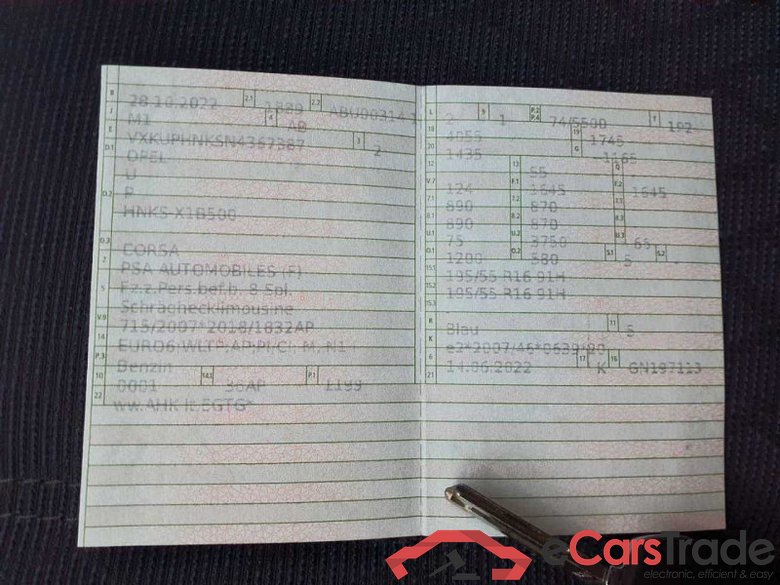 B 28.10.2022 2.1 1889 2.2
J M1 4 AB
E 3 2
D.1 OPEL
U
D.2 P
HNKS X1B500
D.3 CORSA
2 PSA AUTOMOBILES (F)
5 Fz.z.Pers.bef.b. 8 Spl.
Schrägheckllimousine
V.9 715/2007*2018/1832AP
14
P.3 Benzin
10 0001 14.1 36AP P.1 1199
22
L 2 9 1 P.2 P.4 74/5500 T
18 19 1745
20 1435 G
12 13 55 Q
V.7 124 F.1 1645 F.2 1645
7.1 890 7.2 870 7.3
8.1 890 8.2 870 8.3
U.1 75 U.2 3750 U.3 65
O.1 1200 O.2 580 S.1 5 S.2 -
15.1 195/55 R16 91H
15.2 195/55 R16 91H
15.3
R Blau 11 5
K
6 14.06.2022 17 K 16 GN197113
21
eCarsTrade
electronic, efficient & easy